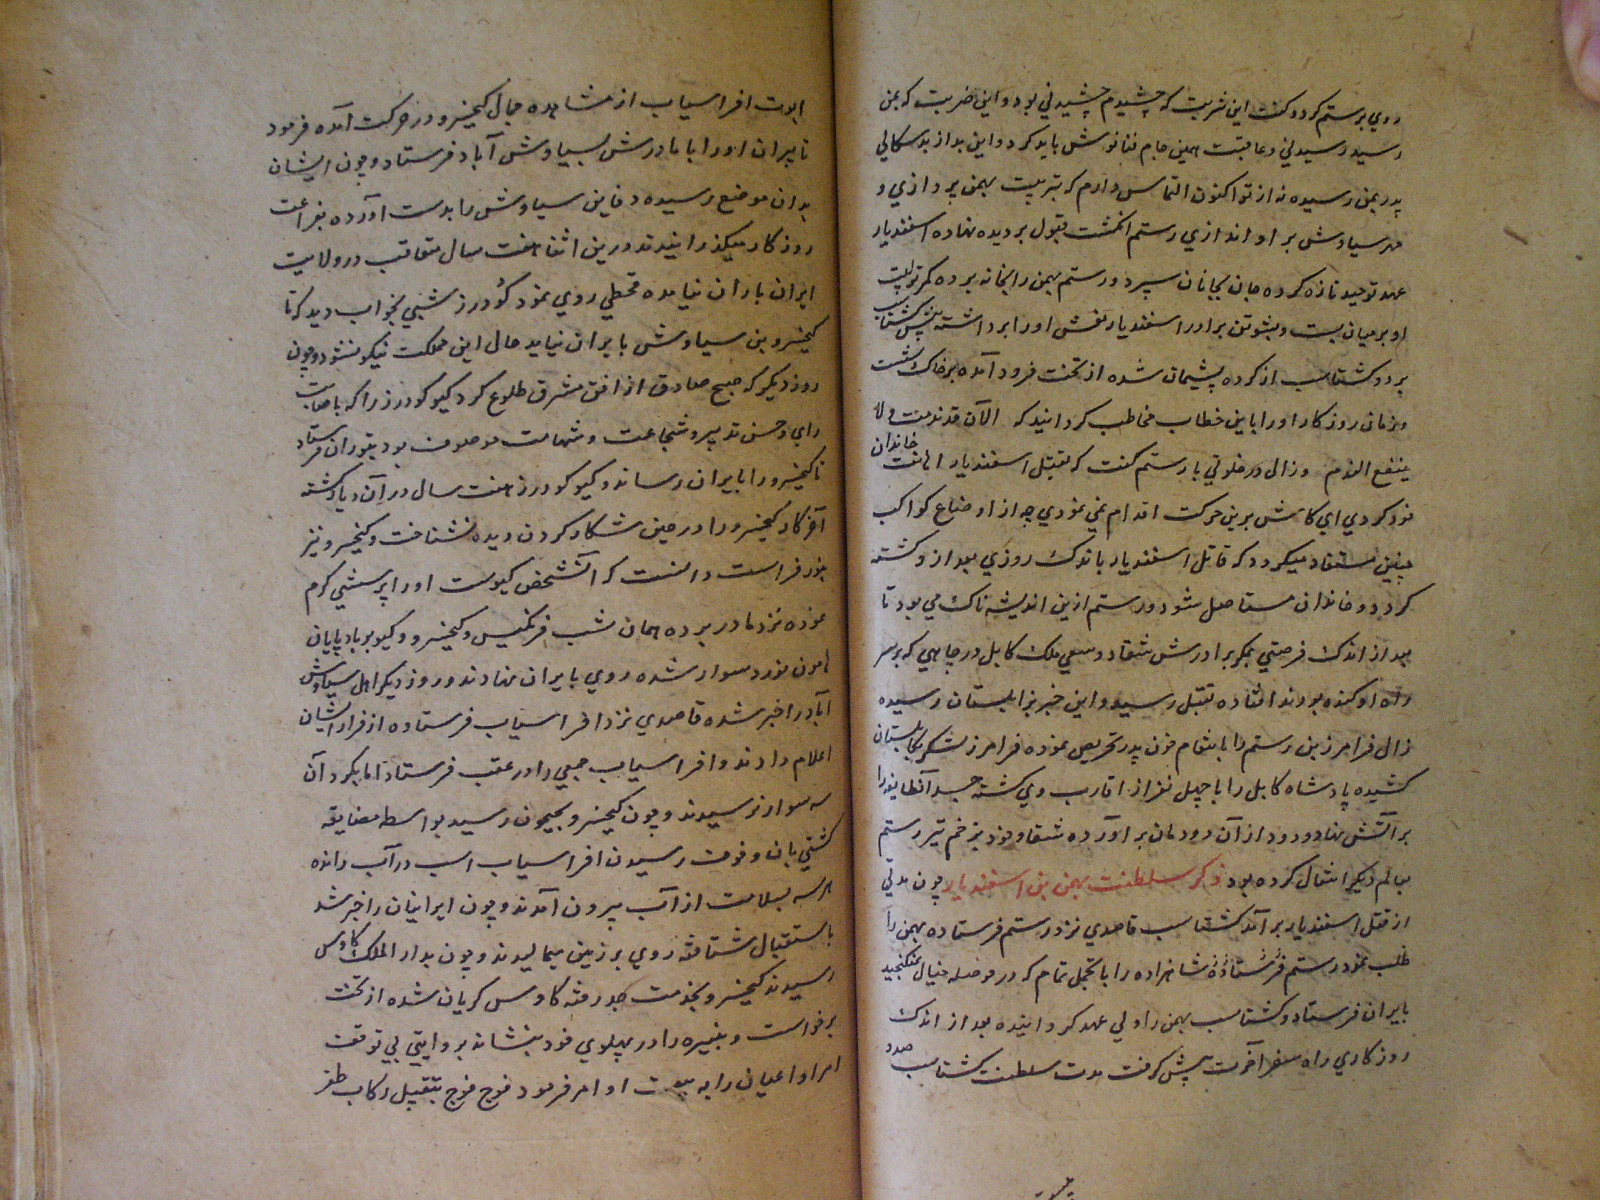 روی برستم کرد و گفت این شربت که چشیدم چشیدنی بود و این ضربت که بمن
رسید رسیدنی و عاقبت همین جام فنا نوش باید کرد و این بد از بدسکالی
پدر بمن رسیده نه از تو اکنون التماس دارم که بتربیت بهمن پردازی و
مهر سیاوش بر او اندازی رستم انگشت قبول بر دیده نهاده اسفندیار
عهد توحید تازه کرده جان بجانان سپرد و رستم بهمن را بخانه برده کمر تربیت
او بر میان بست و بشوتن برادر اسفندیار نعش او را برداشته پیش کشتاسب
برد و کشتاسب از کرده پشیمان شده از تخت فرود آمده بر خاک نشست
و زمانی روزکار او را باین خطاب مخاطب کردانید که الآن قد ندمت و لا
ینفع الندم و زال در خلوتی با رستم کفت که بقتل اسفندیار اهانت خاندان
خود کردی ای کاش برین حرکت اقدام نمی نمودی چه از اوضاع کواکب
چنین مستفاد میکردد که قاتل اسفندیار باندک روزی بعد از و کشته
کردد و خاندان مستاصل شود و رستم ازین اندیشه ناک می بود تا
بعد از اندک فرصتی بمکر برادرش شقاد و سعی ملک کابل در چاهی که بر سر
راه او کنده بودند افتاده بقتل رسید و این خبر بزابلستان رسیده
زال فرامرز بن رستم را بانتقام خون پدر تحریص نموده فرامرز لشکر بکابلستان
کشیده پادشاه کابل را با چهل نفر از اقارب وی کشته جسد آنطایفه را
بر آتش نهاد و دود از آن دودمان برآورده شقاد خود بزخم تیر رستم
بعالم دیکر انتقال کرده بود ذکر سلطنت بهمن بن اسفندیار چون مدتی
از قتل اسفندیار برآمد کشتاسب قاصدی نزد رستم فرستاده بهمن را
طلب نمود رستم فرستاده شاهزاده را با تجمل تمام که در حوصله خیال نمیکنجید
بایران فرستاد و کشتاسب بهمن را ولی عهد کردانیده بعد از اندک
روزکاری راه سفر آخرت پیش کرفت مدت سلطنت کشتاسب صد و
ابوت افراسیاب از مشاهده جمال کیخسرو در حرکت آمده فرمود
تا پیران او را با مادرش بسیاوش آباد فرستاد و چون ایشان
بدان موضع رسیده دفاین سیاوش را بدست آورده بفراغت
روزکار میکذرانیدند درین اثنا هفت سال متعاقب در ولایت
ایران باران نیامده قحطی روی نمود کودرز شبی بخواب دید که تا
کیخسرو بن سیاوش بایران نیاید حال این مملکت نیکو نشود و چون
روز دیکر که صبح صادق از افق مشرق طلوع کرد کیو کودرز را که باصابت
رای و حسن تدبیر و شجاعت و شهامت موصوف بود بتوران فرستاد
تا کیخسرو را بایران رساند و کیو کودرز هفت سال در آن دیار کشته
آخر کار کیخسرو را در حین شکار کردن دیده نشناخت و کیخسرو نیز
بنور فراست دانست که آنشخص کیوست او را پرسشی کرم
نموده نزد مادر برده همان شب فرنکیس و کیخسرو و کیو بر بادپایان
هامون نورد سوار شده روی بایران نهادند و روز دیکر اهل سیاوش
آباد را خبر شده قاصدی نزد افراسیاب فرستاده از فرار ایشان
اعلام دادند و افراسیاب جمعی را در عقب فرستاد اما بکرد آن
سه سوار نرسیدند و چون کیخسرو بجیحون رسید بواسطه مضایقه
کشتی بان و خوف رسیدن افراسیاب اسب در آب رانده
هر سه بسلامت از آب بیرون آمدند و چون ایرانیان را خبر شد
باستقبال شتافته روی بر زمین میمالیدند و چون بدار الملک کاوس
رسیدند کیخسرو بخدمت جد رفته کاوس کریان شده از تخت
برخواست و نبیره را در پهلوی خود بنشاند بروایتی بی توقف
امرا و اعیان را به بیعت او امر فرمود فوج فوج بتقبیل رکاب ظفر